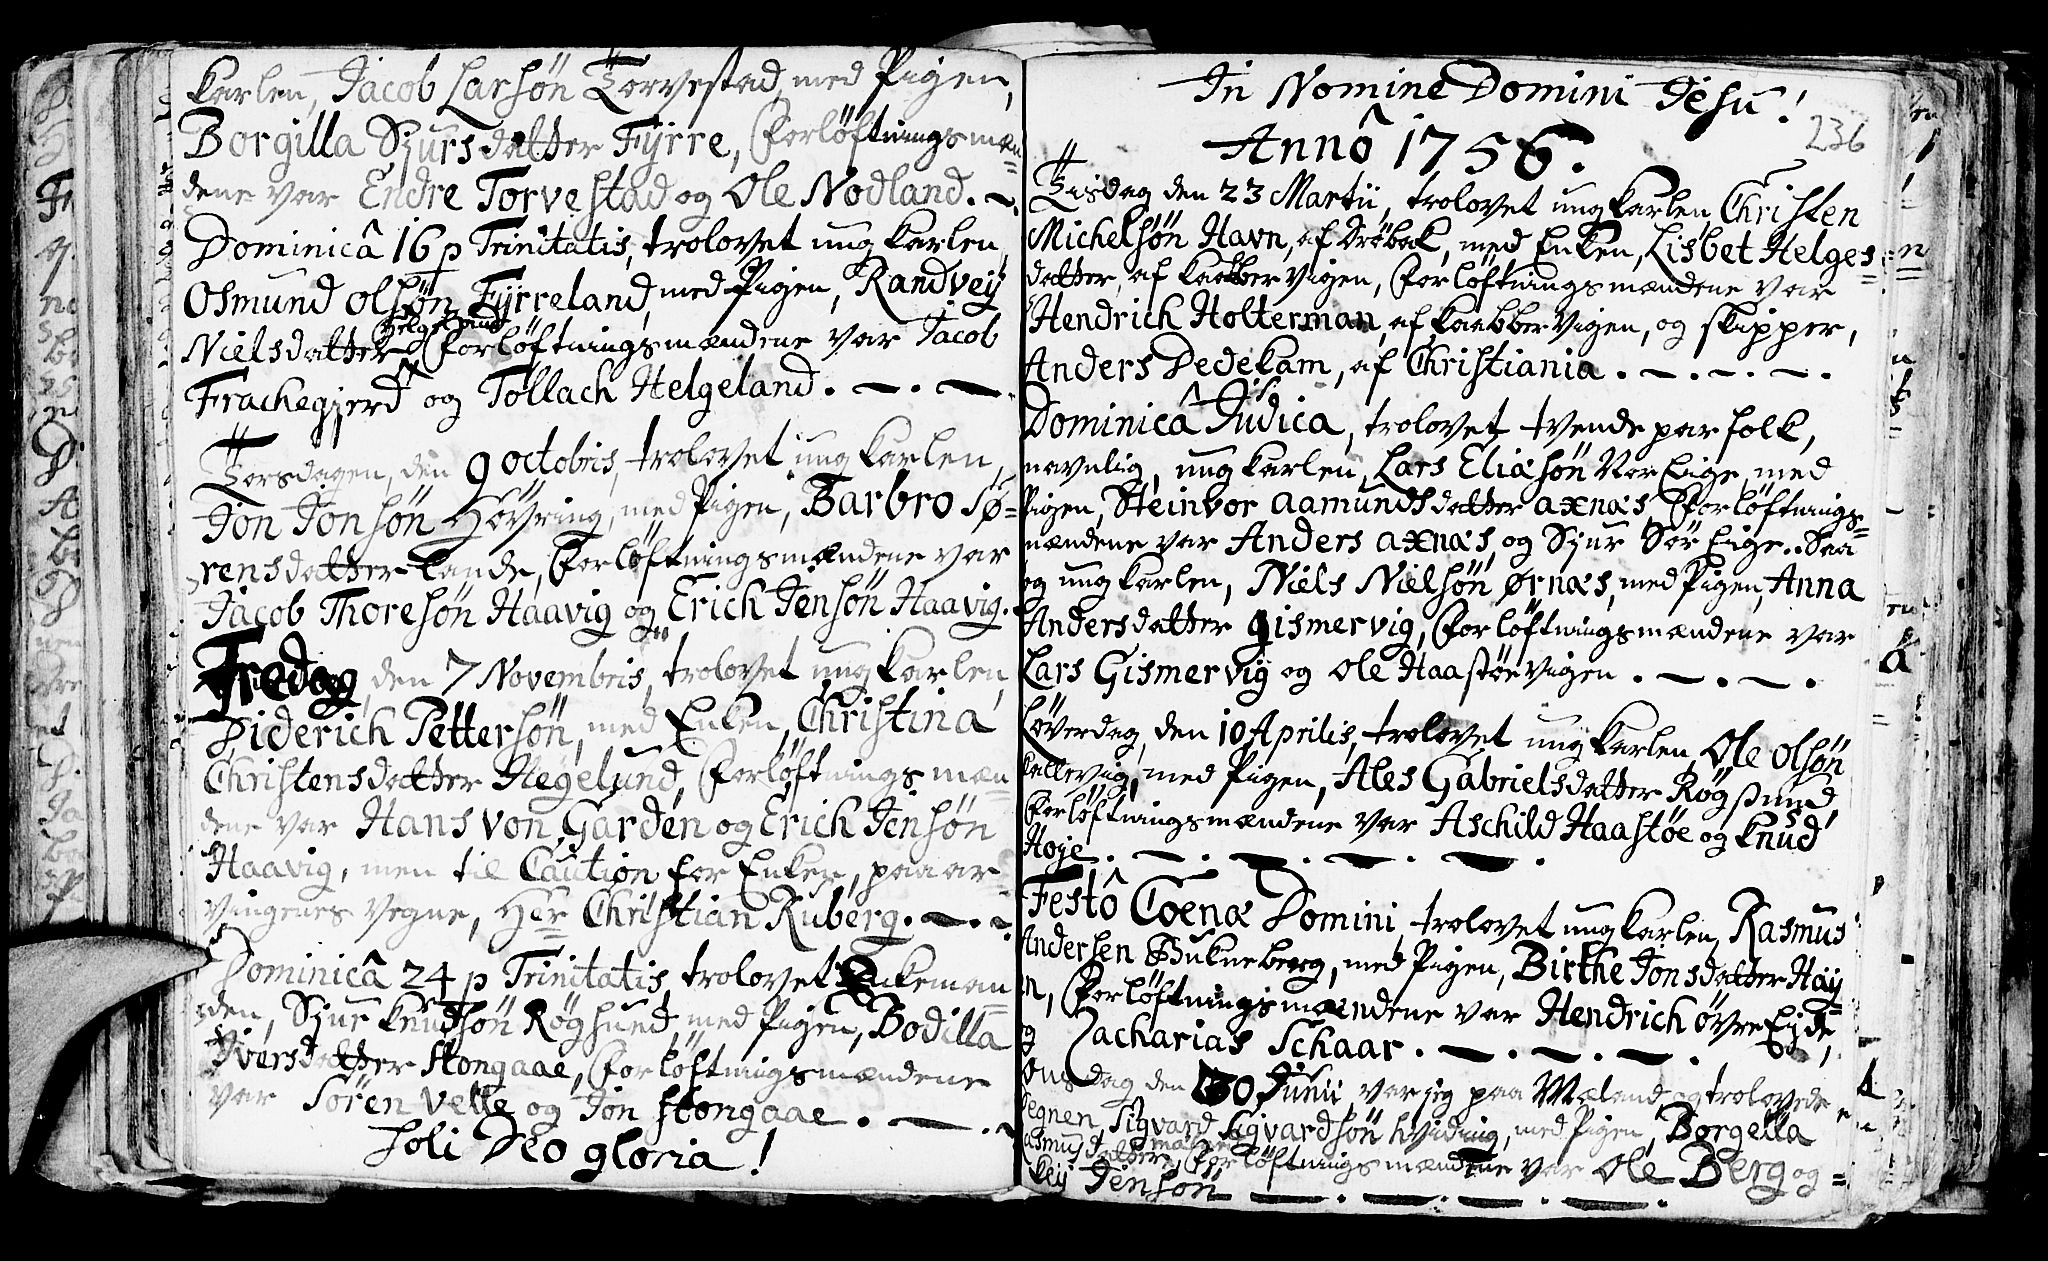 Karlen, Jacob Larsön Torvestad, med Pigen,
Borgilla Sjursdatter Fyrre, Forlöftningsmæn=
dene var Endre Torvestad og Ole Nodland. —.
Dominicâ 16 p Trinitatis, trolovet ungkarlen,
Osmund Olsön Fyrreland, med Pigen, Randvey
Helgeland
Nielsdatter Forlöftningsmændene var Jacob
Frachegjerd og Tollach Helgeland. —. —.
Torsdagen, den 9 Octobris, trolovet ungkarlen,
Jon Jonsön Höyring, med Pigen, Barbro Sø=
rensdatter Lande, Forlöftningsmændene var
Jacob Thoresön Haavig og Erich Jensön Haavig.
Fredag, den 7 Novembris, trolovet ungkarlen,
Diderich Pettersön, med Enken, Christina
Christensdatter Hegelund, Forlöftningsmæn=
dene var Hans von Garden og Erich Jensön
Haavig, men til Caution for Enken, paa ar=
vingenes vegne, Her Christian Ruberg. —.
Dominicâ 24 p Trinitatis, trolovet Enkeman=
den, Sjur Knudsön Røghsund, med Pigen, Bodilla
Iversdatter Stongaae, Forlöftningsmændene
var Sören Velle og Jon Stongaae. —.
Soli Deo gloria!
In Nomine Domini Jesu!
236
Annô 1756.
Tisdag den 23 Martii, trolovet ungkarlen Christen
Michelsön Havn, af Dröbak, med Enken, Lisbet Helges=
datter, af Kaabbervigen, Forlöftningsmændene var
Hendrich Holterman, af Kaabbervigen, og Skipper,
Anders Dedekam, af Christiania. —. —. —.
Dominicâ Judica, trolovet tvende par folk,
navnlig, ungkarlen, Lars Eliasön Nor Eige, med
Pigen, Steinvor Aamundsdatter Axnæs, Forlöftnings=
mændene var Anders Axnæs, og Sjur Sör Eige.. Saa
og ungkarlen, Niels Nielsön Ørnæs, med Pigen, Anna
Andersdatter Gismervig, Forlöftningsmændene var
Lars Gismervig og Ole Haastöevigen. —. —.
Löverdag, den 10 Aprilis, trolovet ungkarlen, Ole Olsön
Kallevig, med Pigen, Ales Gabrielsdatter Røgsund,
Forlöftningsmændene var Aschild Haastöe og Knud
Hoye. —. —. —. —.
Festô Coenæ Domini, trolovet ungkarlen, Rasmus
Andersen Bukneberg, med Pigen, Birthe Jonsdatter Høy=
n, Forlöftningsmændene var Hendrich övre Eyde,
og Zacharias Schaar. —. —. —.
Onsdag den 30 Junii, var jeg paa Mæland og trolovede
Degnen, Sigvard Sigvardsön Hviding, med Pigen, Borgella
Rasmusdatter, Forlöftningsmændene var Ole Berg og
Jensön —. —. —. —.